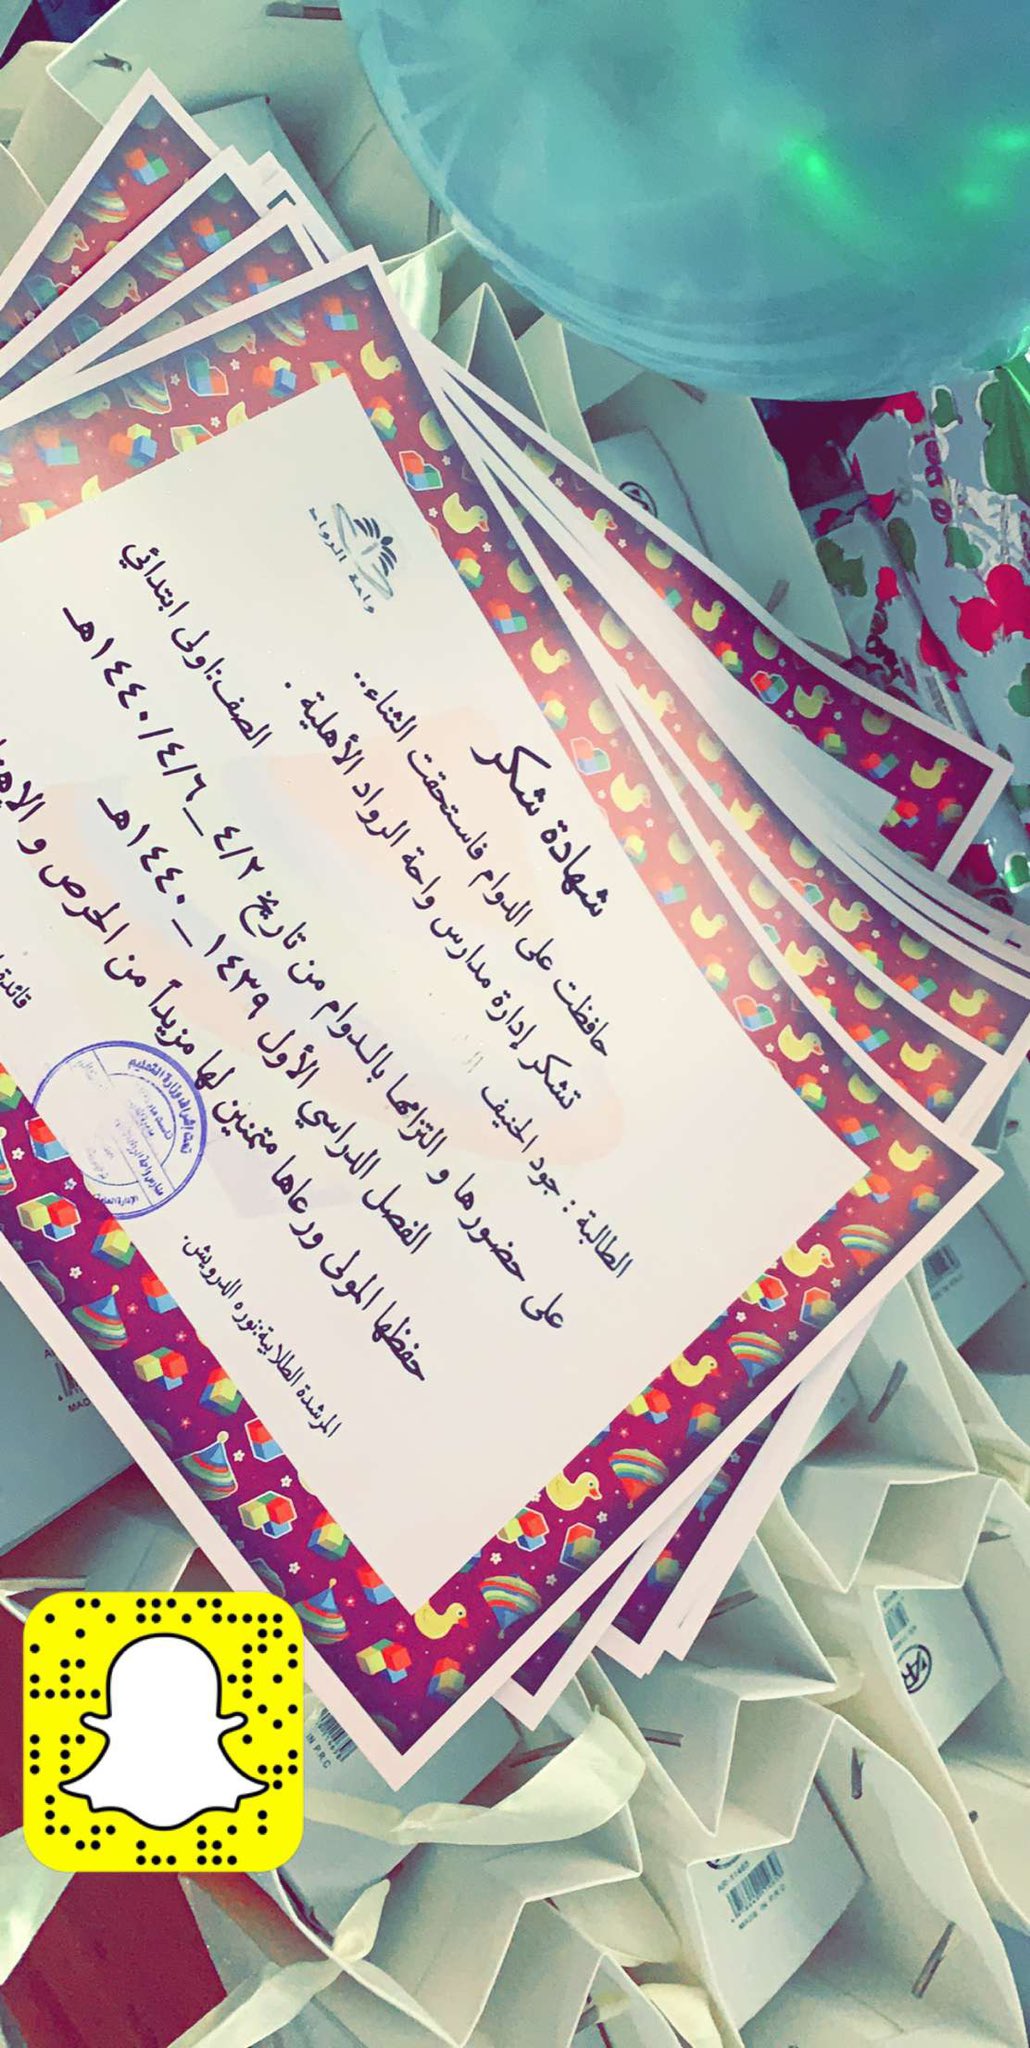 واحة الرواد
شهادة شكر
حافظت على الدوام فاستحقت الثناء..
تشكر إدارة مدارس واحة الرواد الأهلية .
الطالبة : جود الحنيف
الصف:اولى ابتدائي
على حضورها و التزامها بالدوام من تاريخ ٤/٢ _ ١٤٤٠/٤/٦هـ
الفصل الدراسي الأول ١٤٣٩ _ ١٤٤٠هـ
حفظها المولى ورعاها متمنين لها مزيداً من الحرص و
المرشدة الطلابية:نوره الدرويش.
تحت إشراف وزارة التعليم
MADE IN P.R.C
IN P.R.C